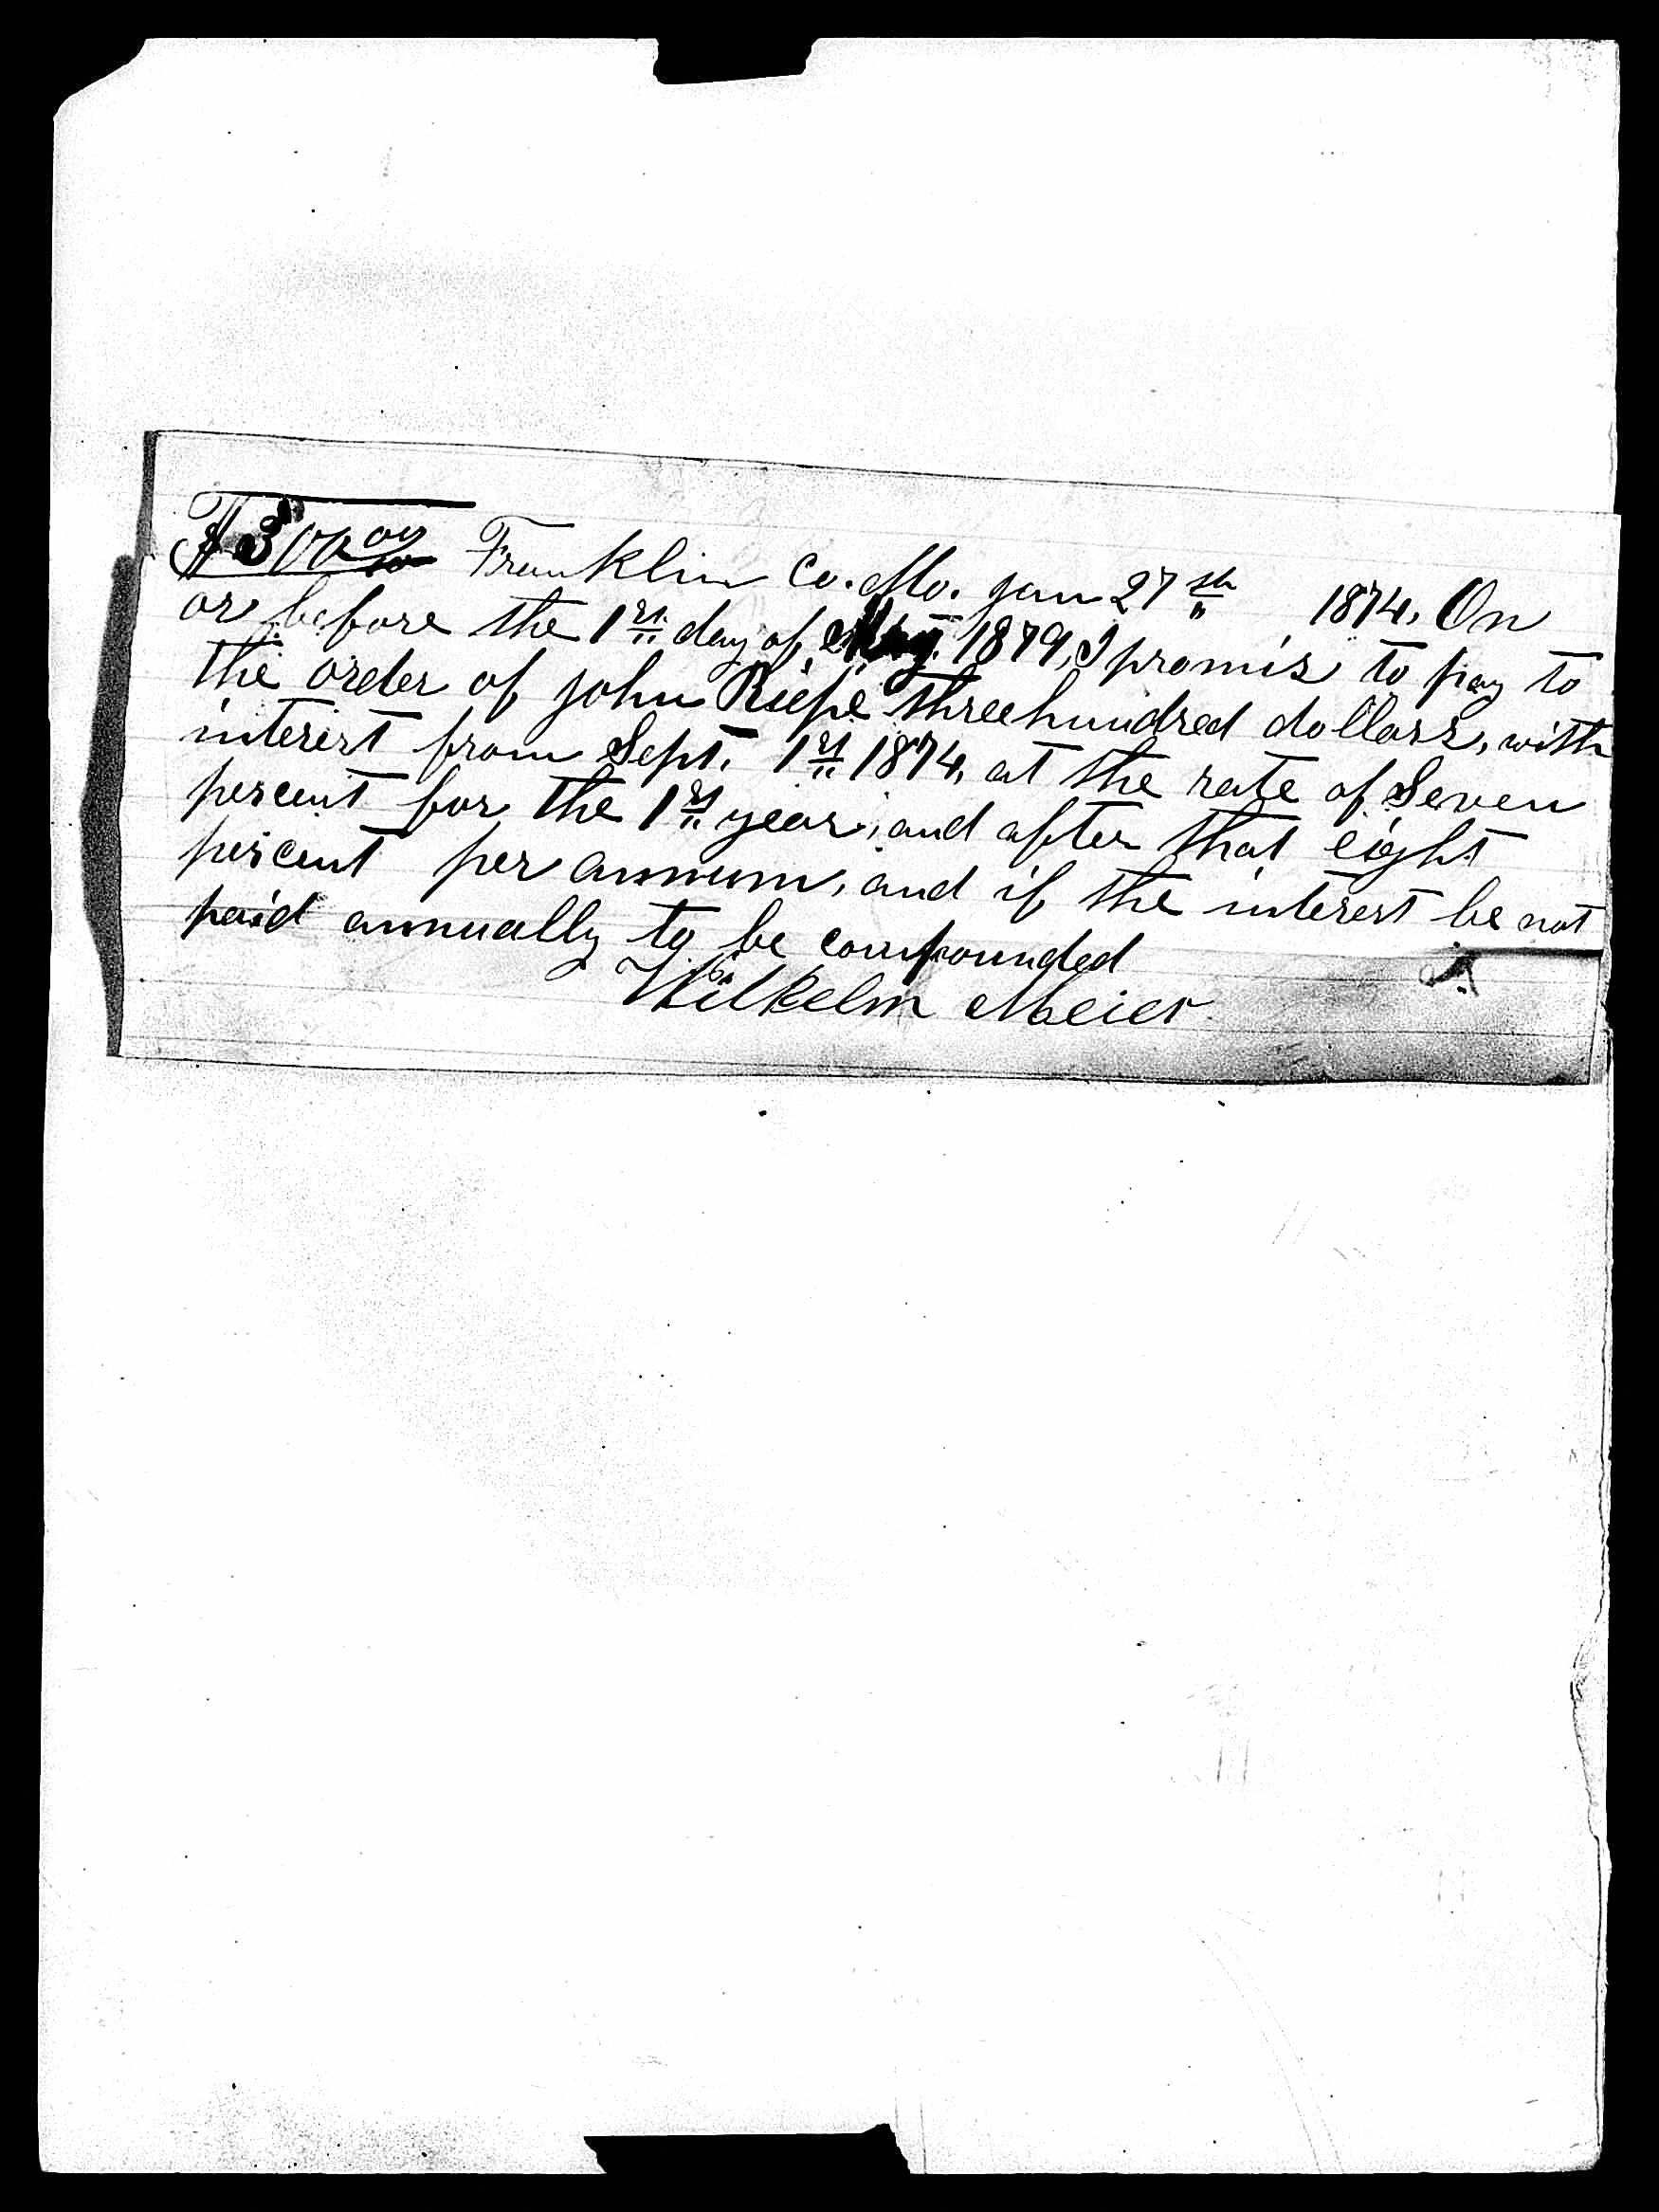 $300 00/100 Franklin Co. Mo. Jan 27th 1874. On
or before the 1st day of 1879, I promis to pay to
the order of John Riepe threehundred dollars, with
interest from Sept. 1st 1874, at the rate of Seven
percent for the 1st year, and after that eight
percent per annum, and if the interest be not
paid annually to be compounded
Wilhelm Meier